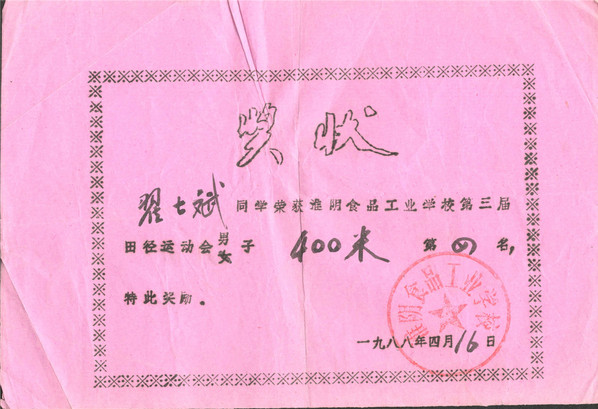 奖状
翟七斌 同学荣获淮阴食品工业学校第三届
田径运动会男女子 400米 第四名，
特此奖励。
淮阴食品工业学校
一九八八年四月16日